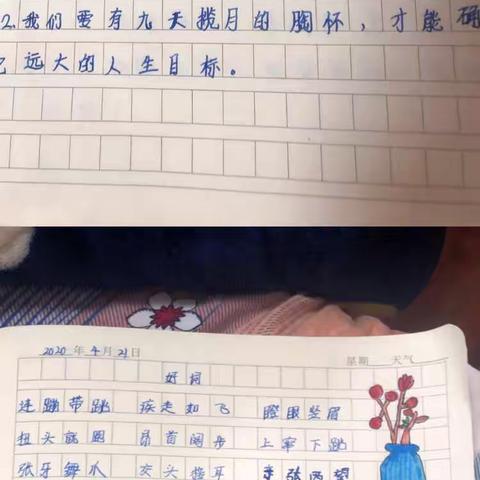 2.我们要有九天揽月的胸怀，才能确
远大的人生目标。
2020 年 4 月 21 日 星期 天气
好词
连蹦带跳 疾走如飞 瞪眼竖眉
扭头就跑 昂首阔步 上窜下跳
张牙舞爪 交头接耳 东张西望